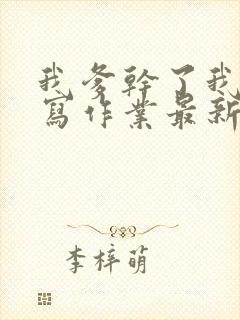 我爹幹了我
寫作業最新
李梓萌